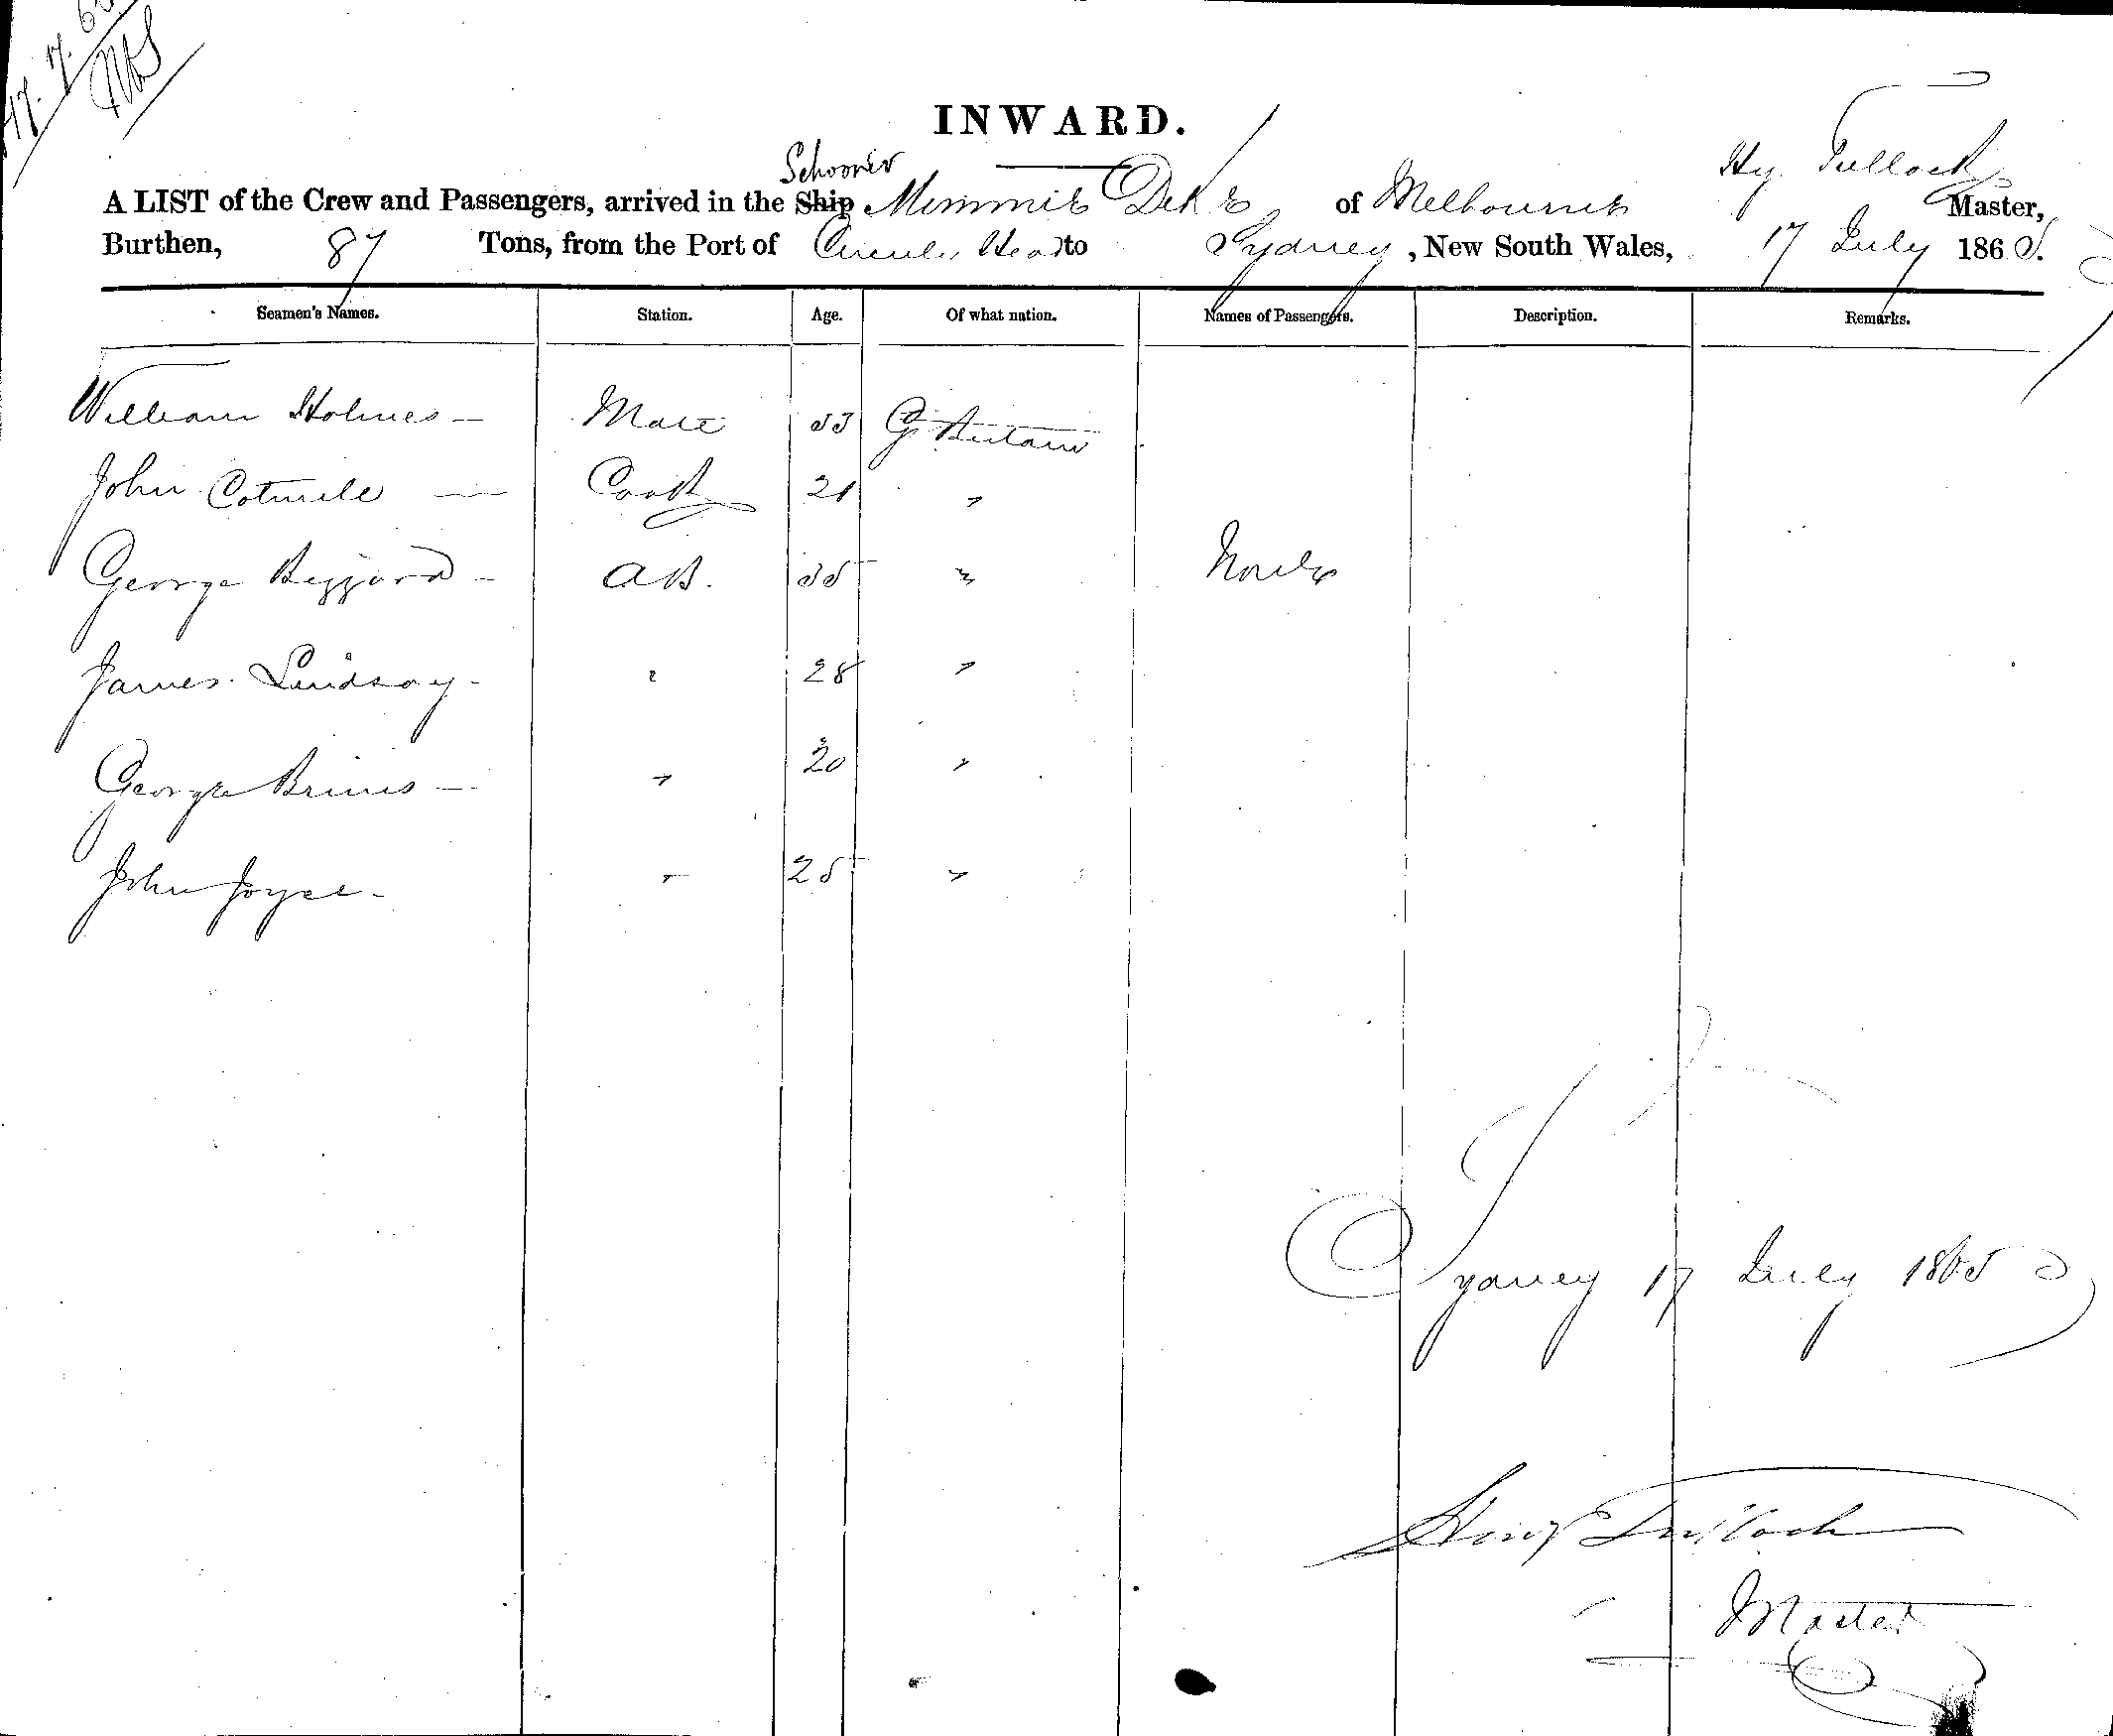 17. 7. 65
INWARD.
Schooner
Hy. Tullock
A LIST of the Crew and Passengers, arrived in the Ship Mimmie Dyke of Melbourne Master,
Burthen, 87 Tons, from the Port of Circular Head to Sydney, New South Wales, 17 July 1865.
Seamen's Names. Station. Age. Of what nation. Names of Passengers. Description. Remarks.
William Holmes — Mate 33 G. Britain
John — Cook 21 "
George - AB. 35 " None
James Lindsay - " 28 "
George — " 20 "
John Joyce - " 25 "
Sydney 17 July 1865
Henry Tullock
Master